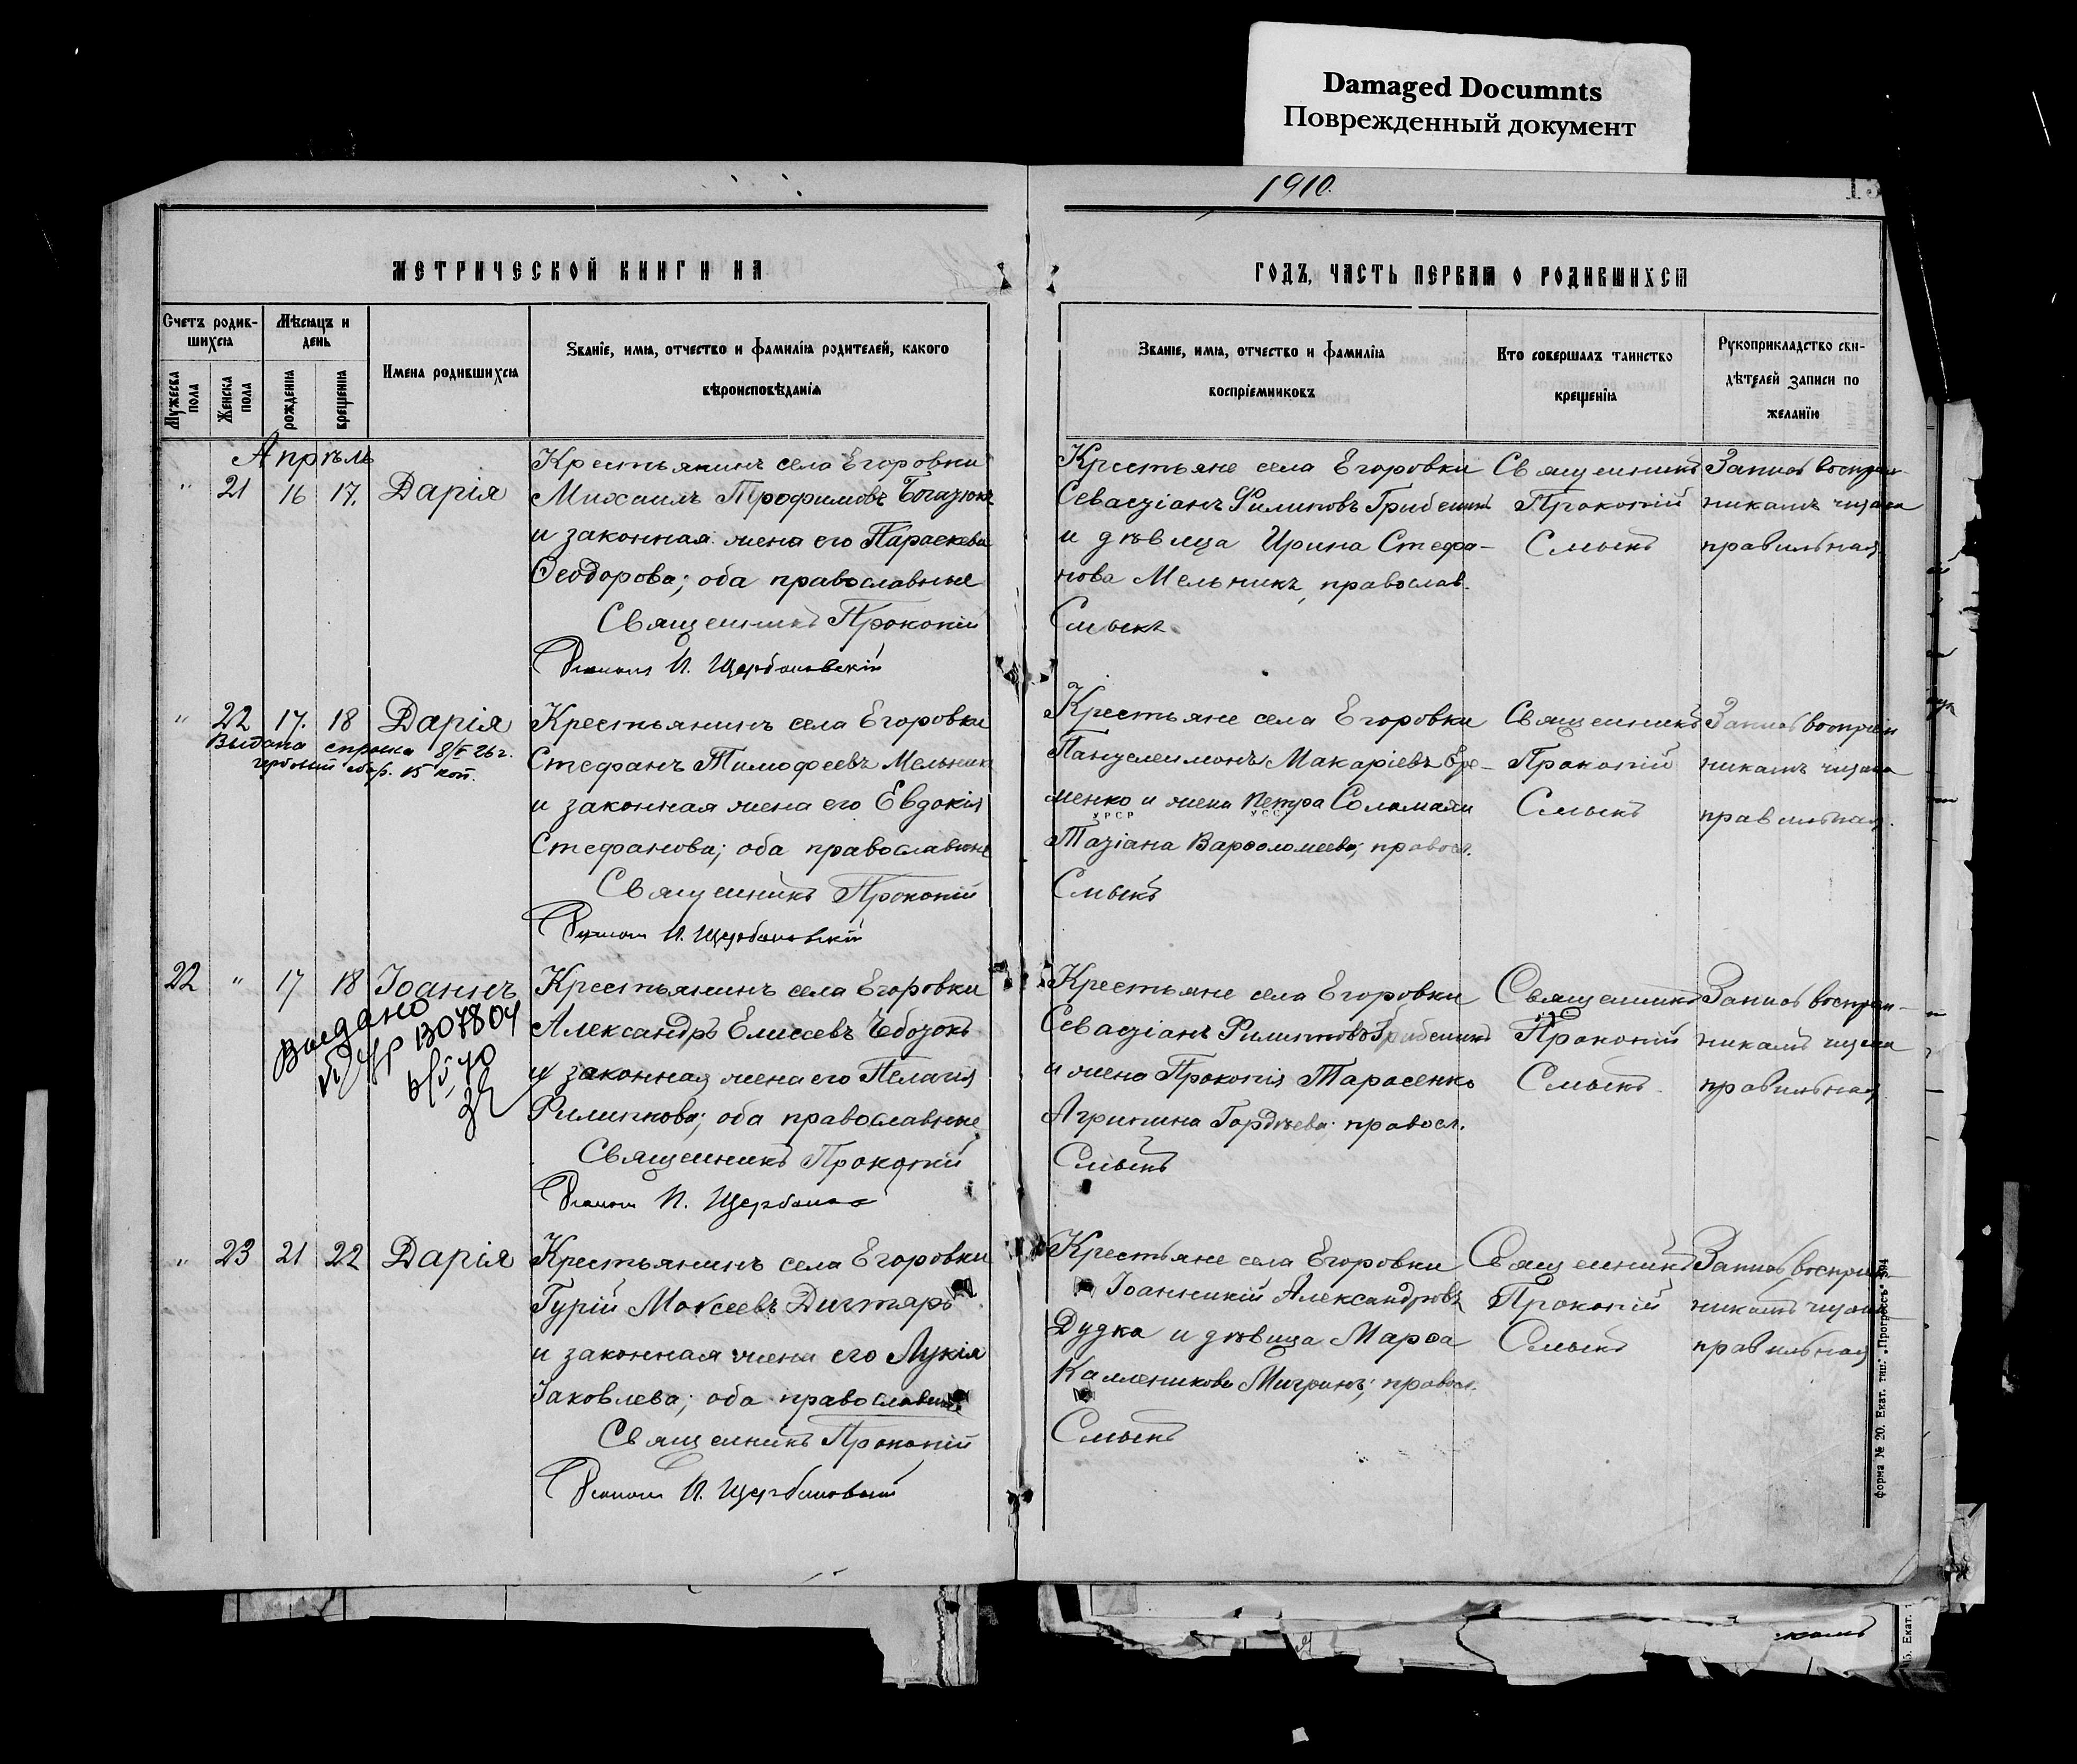 Damaged Documnts
Поврежденный документ
1910.
13
МЕТРИЧЕСКОЙ КНИГИ НА
ГОДЪ, ЧАСТЬ ПЕРВАЯ О РОДИВШИХСЯ
Счетъ родив-
шихся
Мужеска пола
Женска пола
Мѣсяцъ и
день
рожденія
крещенія
Имена родившихся
Званіе, имя, отчество и фамилія родителей, какого
вѣроисповѣданія
Званіе, имя, отчество и фамилія
воспріемниковъ
Кто совершалъ таинство
крещенія
Рукоприкладство сви-
дѣтелей записи по
желанію
Апрѣль
" 21 16 17. Дарія
Крестьянинъ села Егоровки
Михаилъ Трофимовъ
и законная жена его Параскева
Ѳеодорова; оба православные
Священникъ Прокопій
И. Щербановскій
Крестьяне села Егоровки
Севастіанъ Филиповъ
и дѣвица Ирина Стефа-
нова Мельникъ, православ.
Смыкъ
Священникъ
Прокопій
Смыкъ
Запись воспріем-
никамъ читана
правильная
" 22 17. 18 Дарія
Выдана справка 8/V 26 г.
гербовый сбор. 15 коп.
Крестьянинъ села Егоровки
Стефанъ Тимофеевъ Мельникъ
и законная жена его Евдокія
Стефанова; оба православные
Священникъ Прокопій
И. Щербановскій
Крестьяне села Егоровки
Пантелеимонъ Макаріевъ Ере-
менко и жена Петра Соломахи
УРСР УССР
Татіана Варѳоломеева; правосл.
Смыкъ
Священникъ
Прокопій
Смыкъ
Запись воспріем
никамъ читана
правильная.
22 " 17 18 Іоаннъ
Выдано
1307804
Крестьянинъ села Егоровки
Александръ Елисеевъ Чоботъ
и законная жена его Пелагія
Филиппова; оба православные
Священникъ Прокопій
И. Щербанов
Крестьяне села Егоровки
Севастіанъ Филиповъ
и жена Прокопія Тарасенко
Агрипина Гордѣева; правосл.
Смыкъ
Священникъ
Прокопій
Смыкъ
Запись воспріем-
никамъ читана
правильная
" 23 21 22 Дарія
Крестьянинъ села Егоровки
Гурій Моѵсеевъ Дигтярь
и законная жена его Лукія
Іаковлева; оба православные
Священникъ Прокопій
И. Щербановскій
Крестьяне села Егоровки
Іоанникій Александровъ
Дудка и дѣвица Марѳа
Каленикова; правосл.
Смыкъ
Священникъ
Прокопій
Смыкъ
Запись воспріем-
никамъ читана
правильная
Форма № 20. Екат. тип. „Прогрессъ“